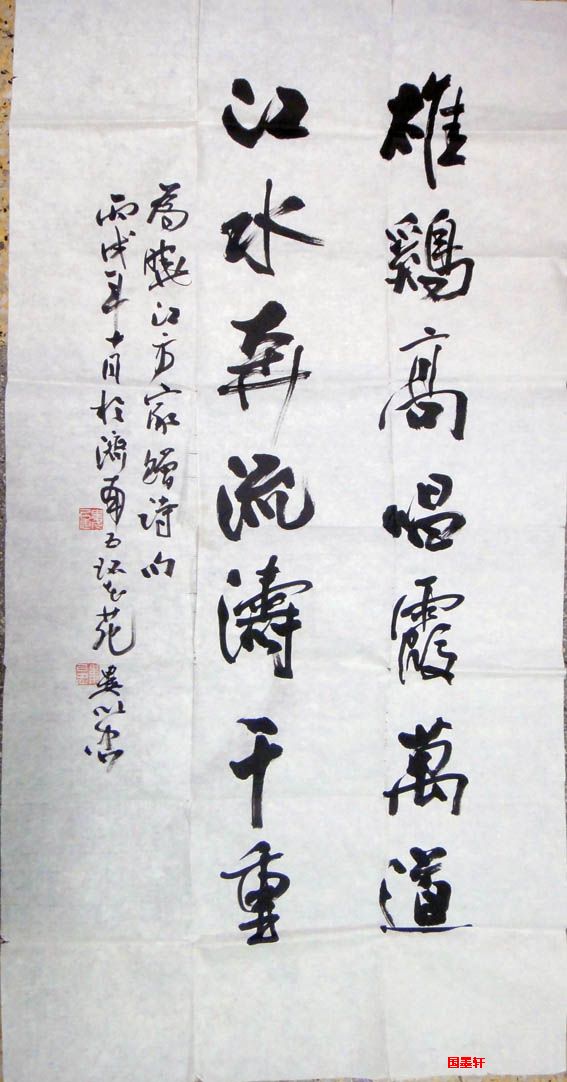 雄鷄高唱霞萬道
江水奔流濤千重
為曉江方家贈詩句
丙戌年十月於濟南
国墨轩